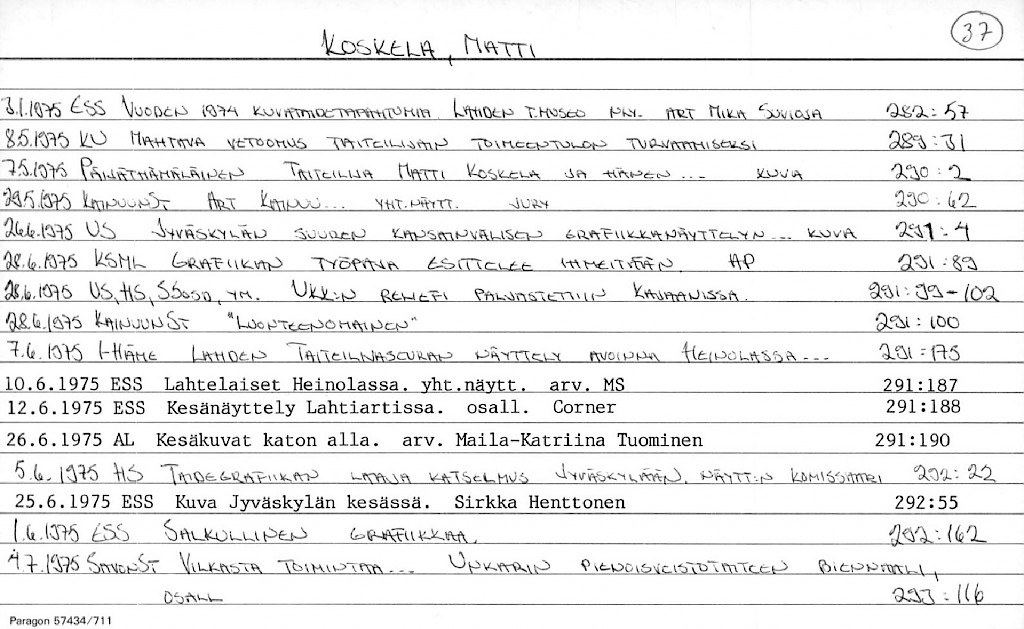 37
KOSKELA, MATTI
3.1.1975 ESS VUODEN 1974 KUVATAIDETAPAHTUMIA. LAHDEN T.MUSEO NÄY. ART MIKA SUVIOJA 282:57
8.5.1975 KU MAHTAVA VETOOMUS TAITEILIJAIN TOIMEENTULON TURVAAMISEKSI 289:31
7.5.1975 PÄIJÄTHÄMÄLÄINEN TAITEILIJA MATTI KOSKELA JA HÄNEN ... KUVA 290:2
29.5.1975 KAINUUNST ART KAINUU... YHT.NÄYTT. JURY 290:62
26.6.1975 US JYVÄSKYLÄN SUUREN KANSAINVÄLISEN GRAFIIKKANÄYTTELYN... KUVA 291:4
28.6.1975 KSML GRAFIIKAN TYÖPAJA ESITTELEE IHMEITÄÄN. AP 291:89
28.6.1975 US, HS, SSOSD, YM. UKK:N RELIEFI PALJASTETTIIN KAJAANISSA. 291:99-102
28.6.1975 KAINUUNST "LUONTEENOMAINEN" 291:100
7.6.1975 I-HÄME LAHDEN TAITEILIJASEURAN NÄYTTELY AVOINNA HEINOLASSA... 291:175
10.6.1975 ESS Lahtelaiset Heinolassa. yht.näytt. arv. MS 291:187
12.6.1975 ESS Kesänäyttely Lahtiartissa. osall. Corner 291:188
26.6.1975 AL Kesäkuvat katon alla. arv. Maila-Katriina Tuominen 291:190
5.6.1975 HS TAIDEGRAFIIKAN LAAJA KATSELMUS JYVÄSKYLÄÄN. NÄYTT:N KOMISSAARI 292:22
25.6.1975 ESS Kuva Jyväskylän kesässä. Sirkka Henttonen 292:55
1.6.1975 ESS SALKULLINEN GRAFIIKKAA. 292:162
4.7.1975 SAVONST VILKASTA TOIMINTAA... UNKARIN PIENOISVEISTOTAITEEN BIENNAALI,
OSALL 293:116
Paragon 57434/711